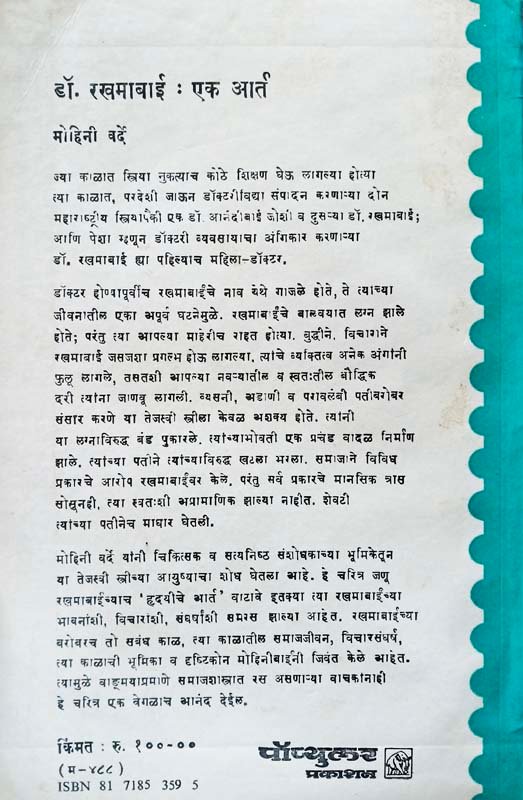 डॉ. रखमाबाई : एक आर्त
मोहिनी वर्दे
ज्या काळात स्त्रिया नुकत्याच कोठे शिक्षण घेऊ लागल्या होत्या
त्या काळात, परदेशी जाऊन डॉक्टरीविद्या संपादन करणाऱ्या दोन
महाराष्ट्रीय स्त्रियांपैकी एक डॉ. आनंदीबाई जोशी व दुसऱ्या डॉ. रखमाबाई;
आणि पेशा म्हणून डॉक्टरी व्यवसायाचा अंगिकार करणाऱ्या
डॉ. रखमाबाई ह्या पहिल्याच महिला-डॉक्टर.
डॉक्टर होण्यापूर्वीच रखमाबाईंचे नाव येथे गाजले होते, ते त्यांच्या
जीवनातील एका अपूर्व घटनेमुळे. रखमाबाईंचे बालवयात लग्न झाले
होते; परंतु त्या आपल्या माहेरीच राहत होत्या. बुद्धीने. विचाराने
रखमाबाई जसजशा प्रगल्भ होऊ लागल्या, त्यांचे व्यक्तित्व अनेक अंगांनी
फुलू लागले, तसतशी आपल्या नवऱ्यातील व स्वतःतील बौद्धिक
दरी त्यांना जाणवू लागली. व्यसनी, अडाणी व परावलंबी पतीबरोबर
संसार करणे या तेजस्वी स्त्रीला केवळ अशक्य होते. त्यांनी
या लग्नाविरुद्ध बंड पुकारले. त्यांच्याभोवती एक प्रचंड वादळ निर्माण
झाले. त्यांच्या पतीने त्यांच्याविरुद्ध खटला भरला. समाजाने विविध
प्रकारचे आरोप रखमाबाईंवर केले. परंतु सर्व प्रकारचे मानसिक त्रास
सोसूनही, त्या स्वतःशी अप्रामाणिक झाल्या नाहीत. शेवटी
त्यांच्या पतीनेच माघार घेतली.
मोहिनी वर्दे यांनी चिकित्सक व सत्यनिष्ठ संशोधकाच्या भूमिकेतून
या तेजस्वी स्त्रीच्या आयुष्याचा शोध घेतला आहे. हे चरित्र जणू
रखमाबाईंच्याच 'हृदयीचे आर्त' वाटावे इतक्या त्या रखमाबाईंच्या
भावनांशी, विचारांशी, संघर्षाशी समरस झाल्या आहेत. रखमाबाईंच्या
बरोबरच तो सबंध काळ, त्या काळातील समाजजीवन, विचारसंघर्ष,
त्या काळाची भूमिका व दृष्टिकोन मोहिनीबाईंनी जिवंत केले आहेत.
त्यामुळे वाङ्मयाप्रमाणे समाजशास्त्रात रस असणाऱ्या वाचकांनाही
हे चरित्र एक वेगळाच आनंद देईल.
किंमत : रु. १००-००
(म-४८८)
ISBN 81 7185 359 5
पॉप्युलर
प्रकाशन